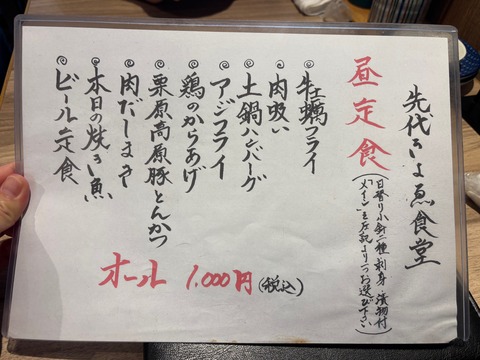 先代きよゑ食堂
昼定食
(日替り小鉢一種・刺身・漬物付
「メイン」を左記より一つお選び下さい)
牡蠣フライ
肉吸い
土鍋ハンバーグ
アジフライ
鶏のからあげ
栗原高原豚とんかつ
肉だしまき
本日の焼き魚
ビール定食
オール 1,000円(税込)